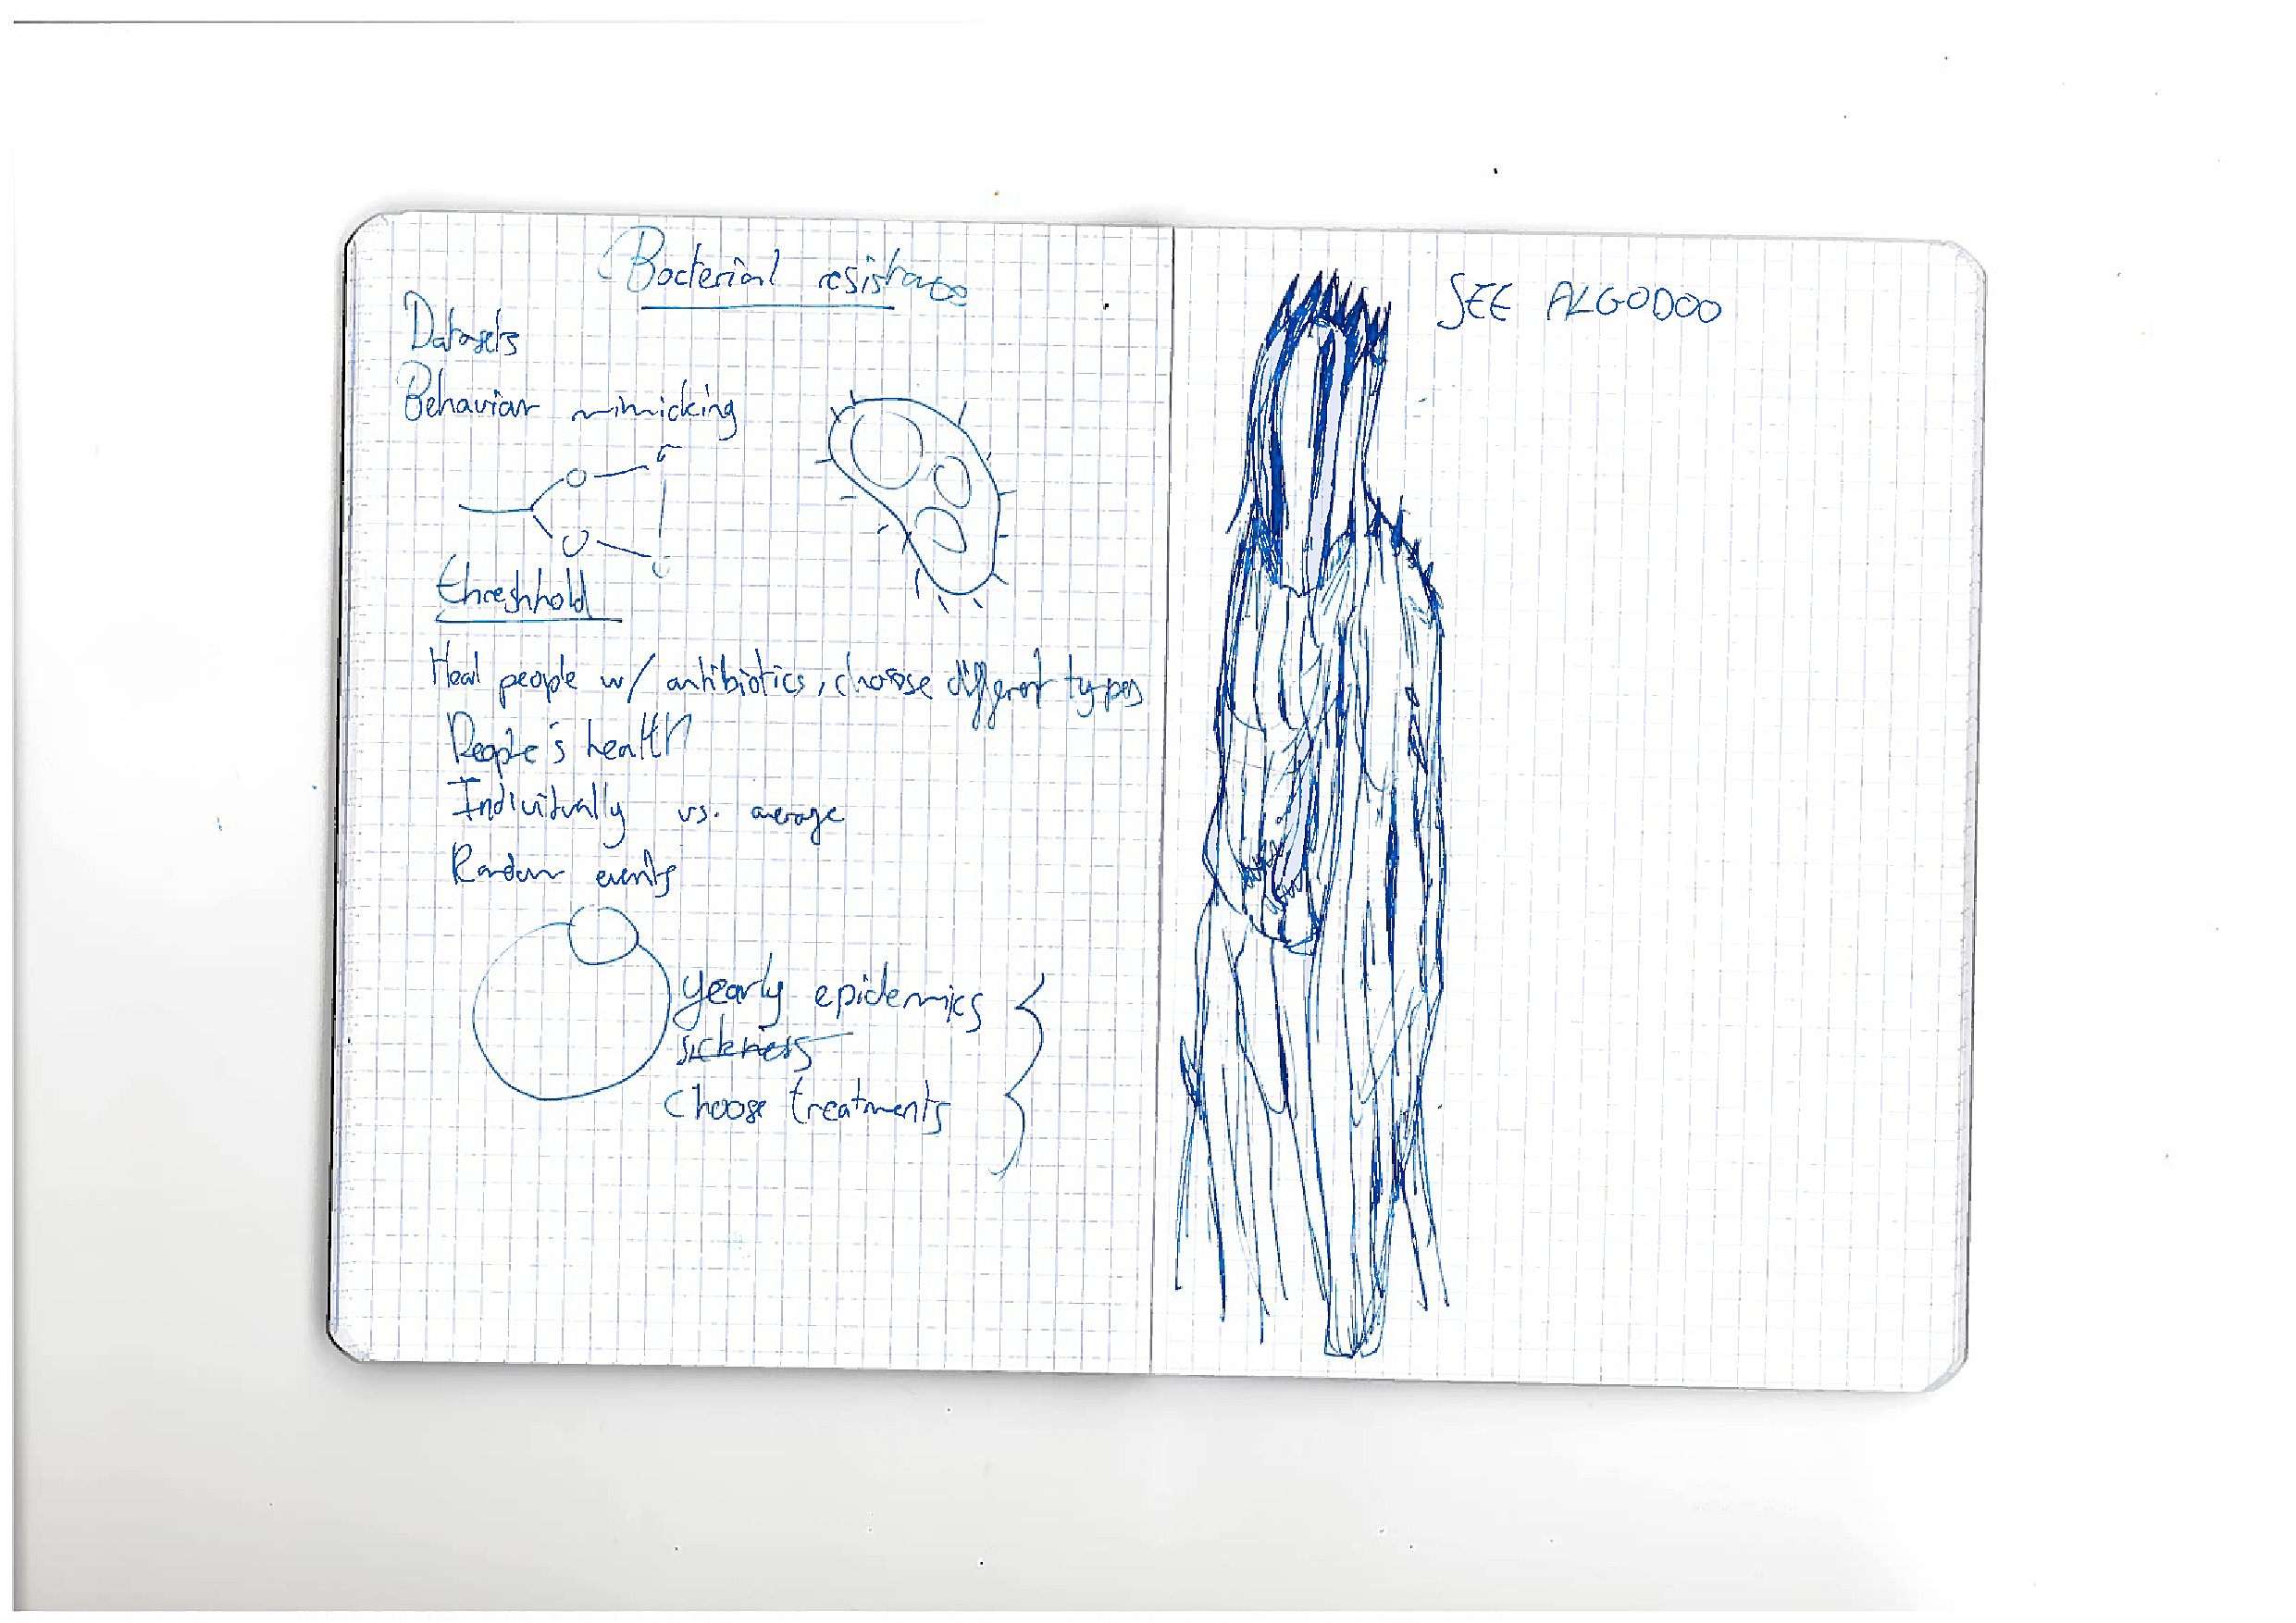 Bacterial resistance
Datasets
Behavior mimicking
threshhold
Heal people w/ antibiotics, choose different types
People's health
Individually vs. average
Random events
yearly epidemics
sickness
choose treatments
SEE ALGODOO